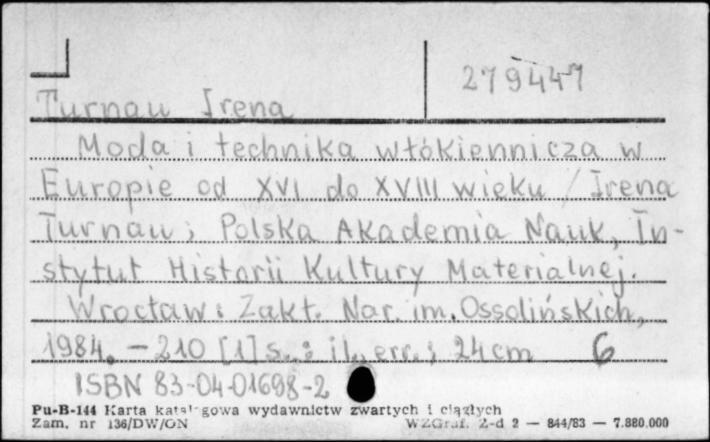 279447
Turnau Irena
Moda i technika włókiennicza w
Europie od XVI do XVIII wieku / Irena
Turnau ; Polska Akademia Nauk, In-
stytut Historii Kultury Materialnej.
Wrocław : Zakł. Nar. im. Ossolińskich,
1984. - 210 [1] s. : il., err. ; 24 cm 6
ISBN 83-04-01698-2
Pu-B-144 Karta katalogowa wydawnictw zwartych i ciągłych
Zam. nr 136/DW/ON WZGraf. Z-d 2 — 844/83 — 7.880.000